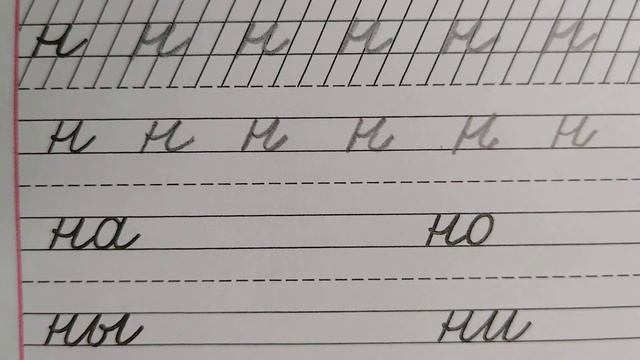 н н н н н н
н н н н н н
на но
ны ни